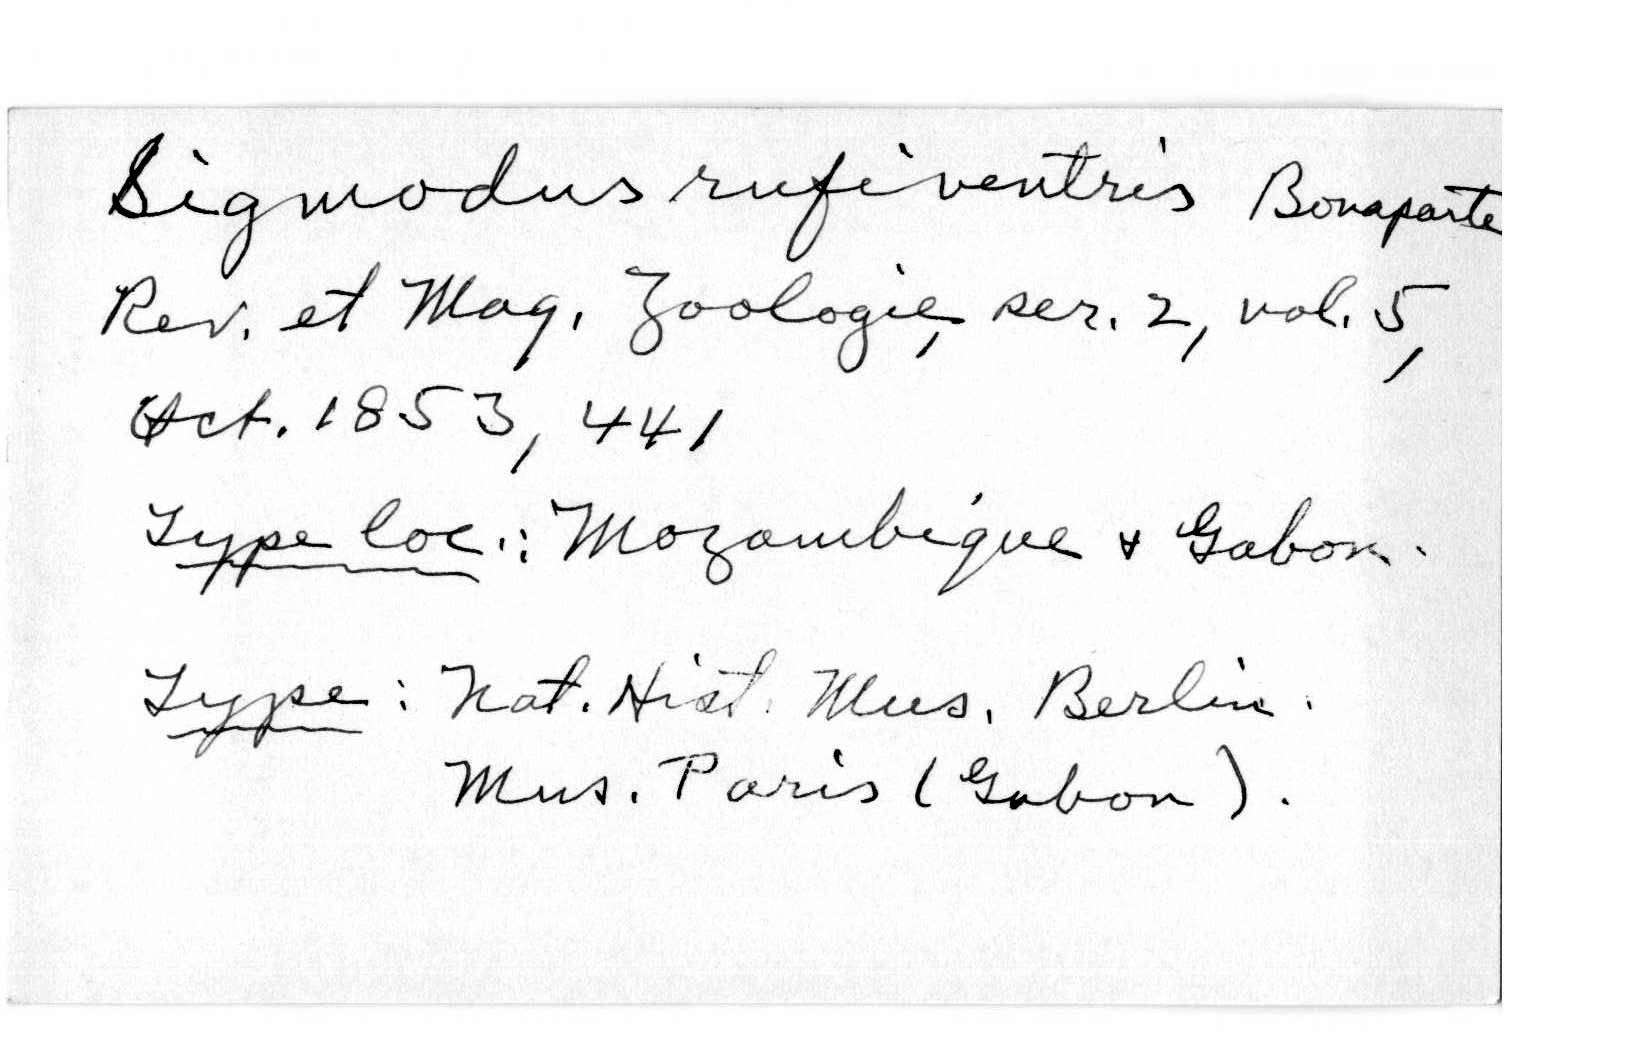 Sigmodus rufiventris Bonaparte
Rev. et Mag. Zoologie, ser. 2, vol. 5,
Oct. 1853, 441
Type loc.: Mozambique & Gabon.
Type: Nat. Hist. Mus. Berlin.
Mus. Paris (Gabon).